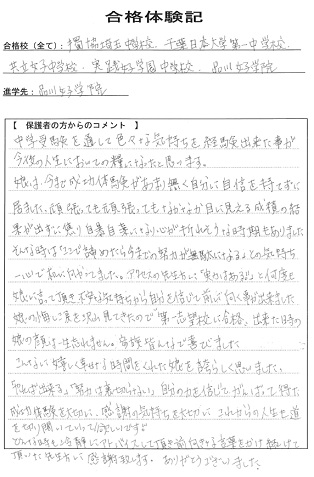 合格体験記
合格校（全て）：獨協埼玉中学校、千葉日本大学第一中学校、
共立女子中学校、実践女子学園中学校、品川女子学院
進学先：品川女子学院
【 保護者の方からのコメント 】
中学受験を通して色々な気持ちを経験出来た事が
今後の人生においての糧になったと思います。
娘は、今まで成功体験があまり無く自分に自信を持てずに
居ました。頑張っても頑張ってもなかなか目に見える成績の結
果が出ずに焦り自暴自棄になり心が折れそうな時期もありました
そんな時は「ここで諦めたら今までの努力が無駄になる」との気持ち
一心で机に向かってました。アクセスの先生方に「実力はある」と何度も
娘に言って頂き不安な気持ちから自分を信じて前に向く事が出来ました
娘の悔し涙を沢山見てきたので第一志望校に合格出来た時の
娘の顔は一生忘れません。家族皆んなで喜びました
こんなに嬉しく幸せな時間をくれた娘を誇らしく思いました。
「やれば出来る」「努力は裏切らない」自分の力を信じてがんばって得た
成功体験を大切に、感謝の気持ちを大切に これからの人生も道
を切り開いていって欲しいです
どんな時も冷静にアドバイスして頂き前向きな言葉をかけ続けて
頂いた先生方に感謝致します。ありがとうございました